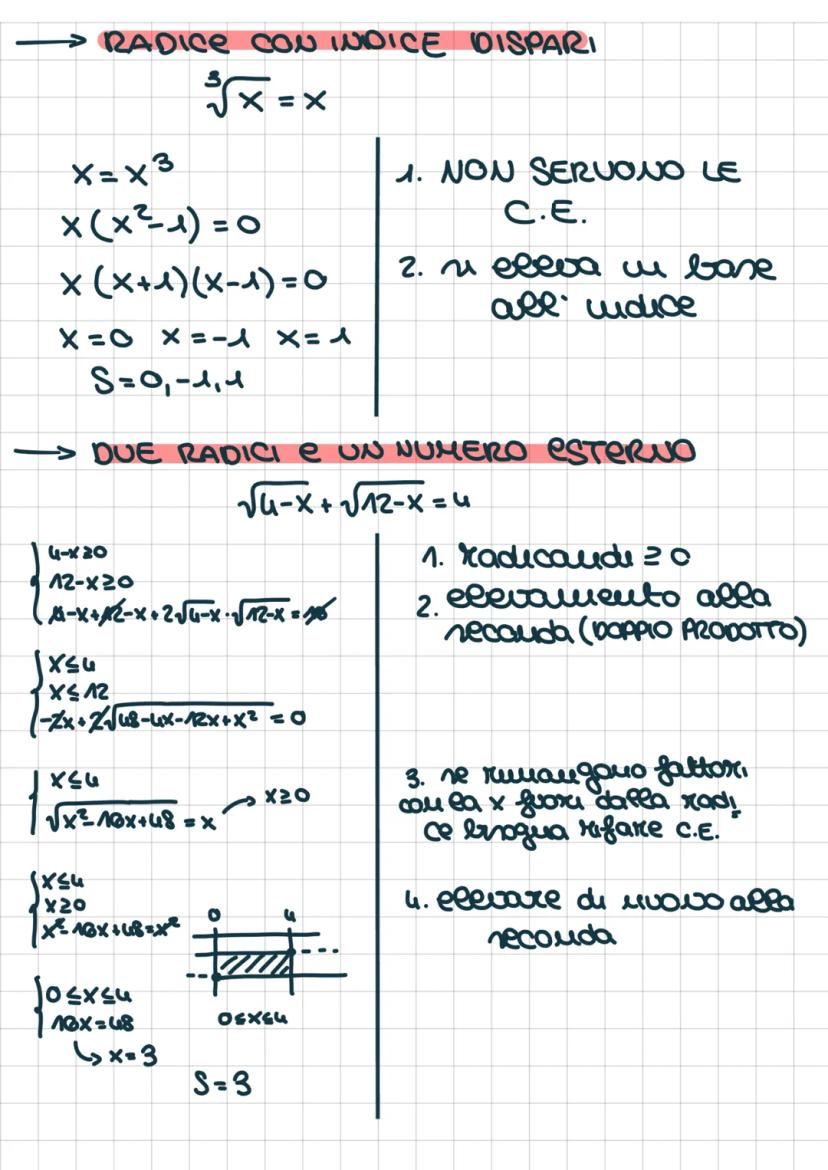 → RADICE CON INDICE DISPARI
∛x = x
x = x³
x(x²-1) = 0
x(x+1)(x-1) = 0
x = 0 x = -1 x = 1
S = 0, -1, 1
1. NON SERVONO LE
C.E.
2. si eleva in base
all' indice
→ DUE RADICI e UN NUMERO ESTERNO
√4-x + √12-x = 4
4-x≥0
12-x≥0
4-x+12-x+2√4-x·√12-x = 16
x≤4
x≤12
-2x+2√48-4x-12x+x² = 0
x≤4
√x²-16x+48 = x → x≥0
x≤4
x≥0
x²-16x+48=x²
0 4
0≤x≤4
0≤x≤4
16x=48
↳ x=3
S=3
1. radicandi ≥ 0
2. elevamento alla
seconda (DOPPIO PRODOTTO)
3. se rimangono fattori
con la x fuori dalla radi
ce bisogna rifare C.E.
4. elevare di nuovo alla
seconda